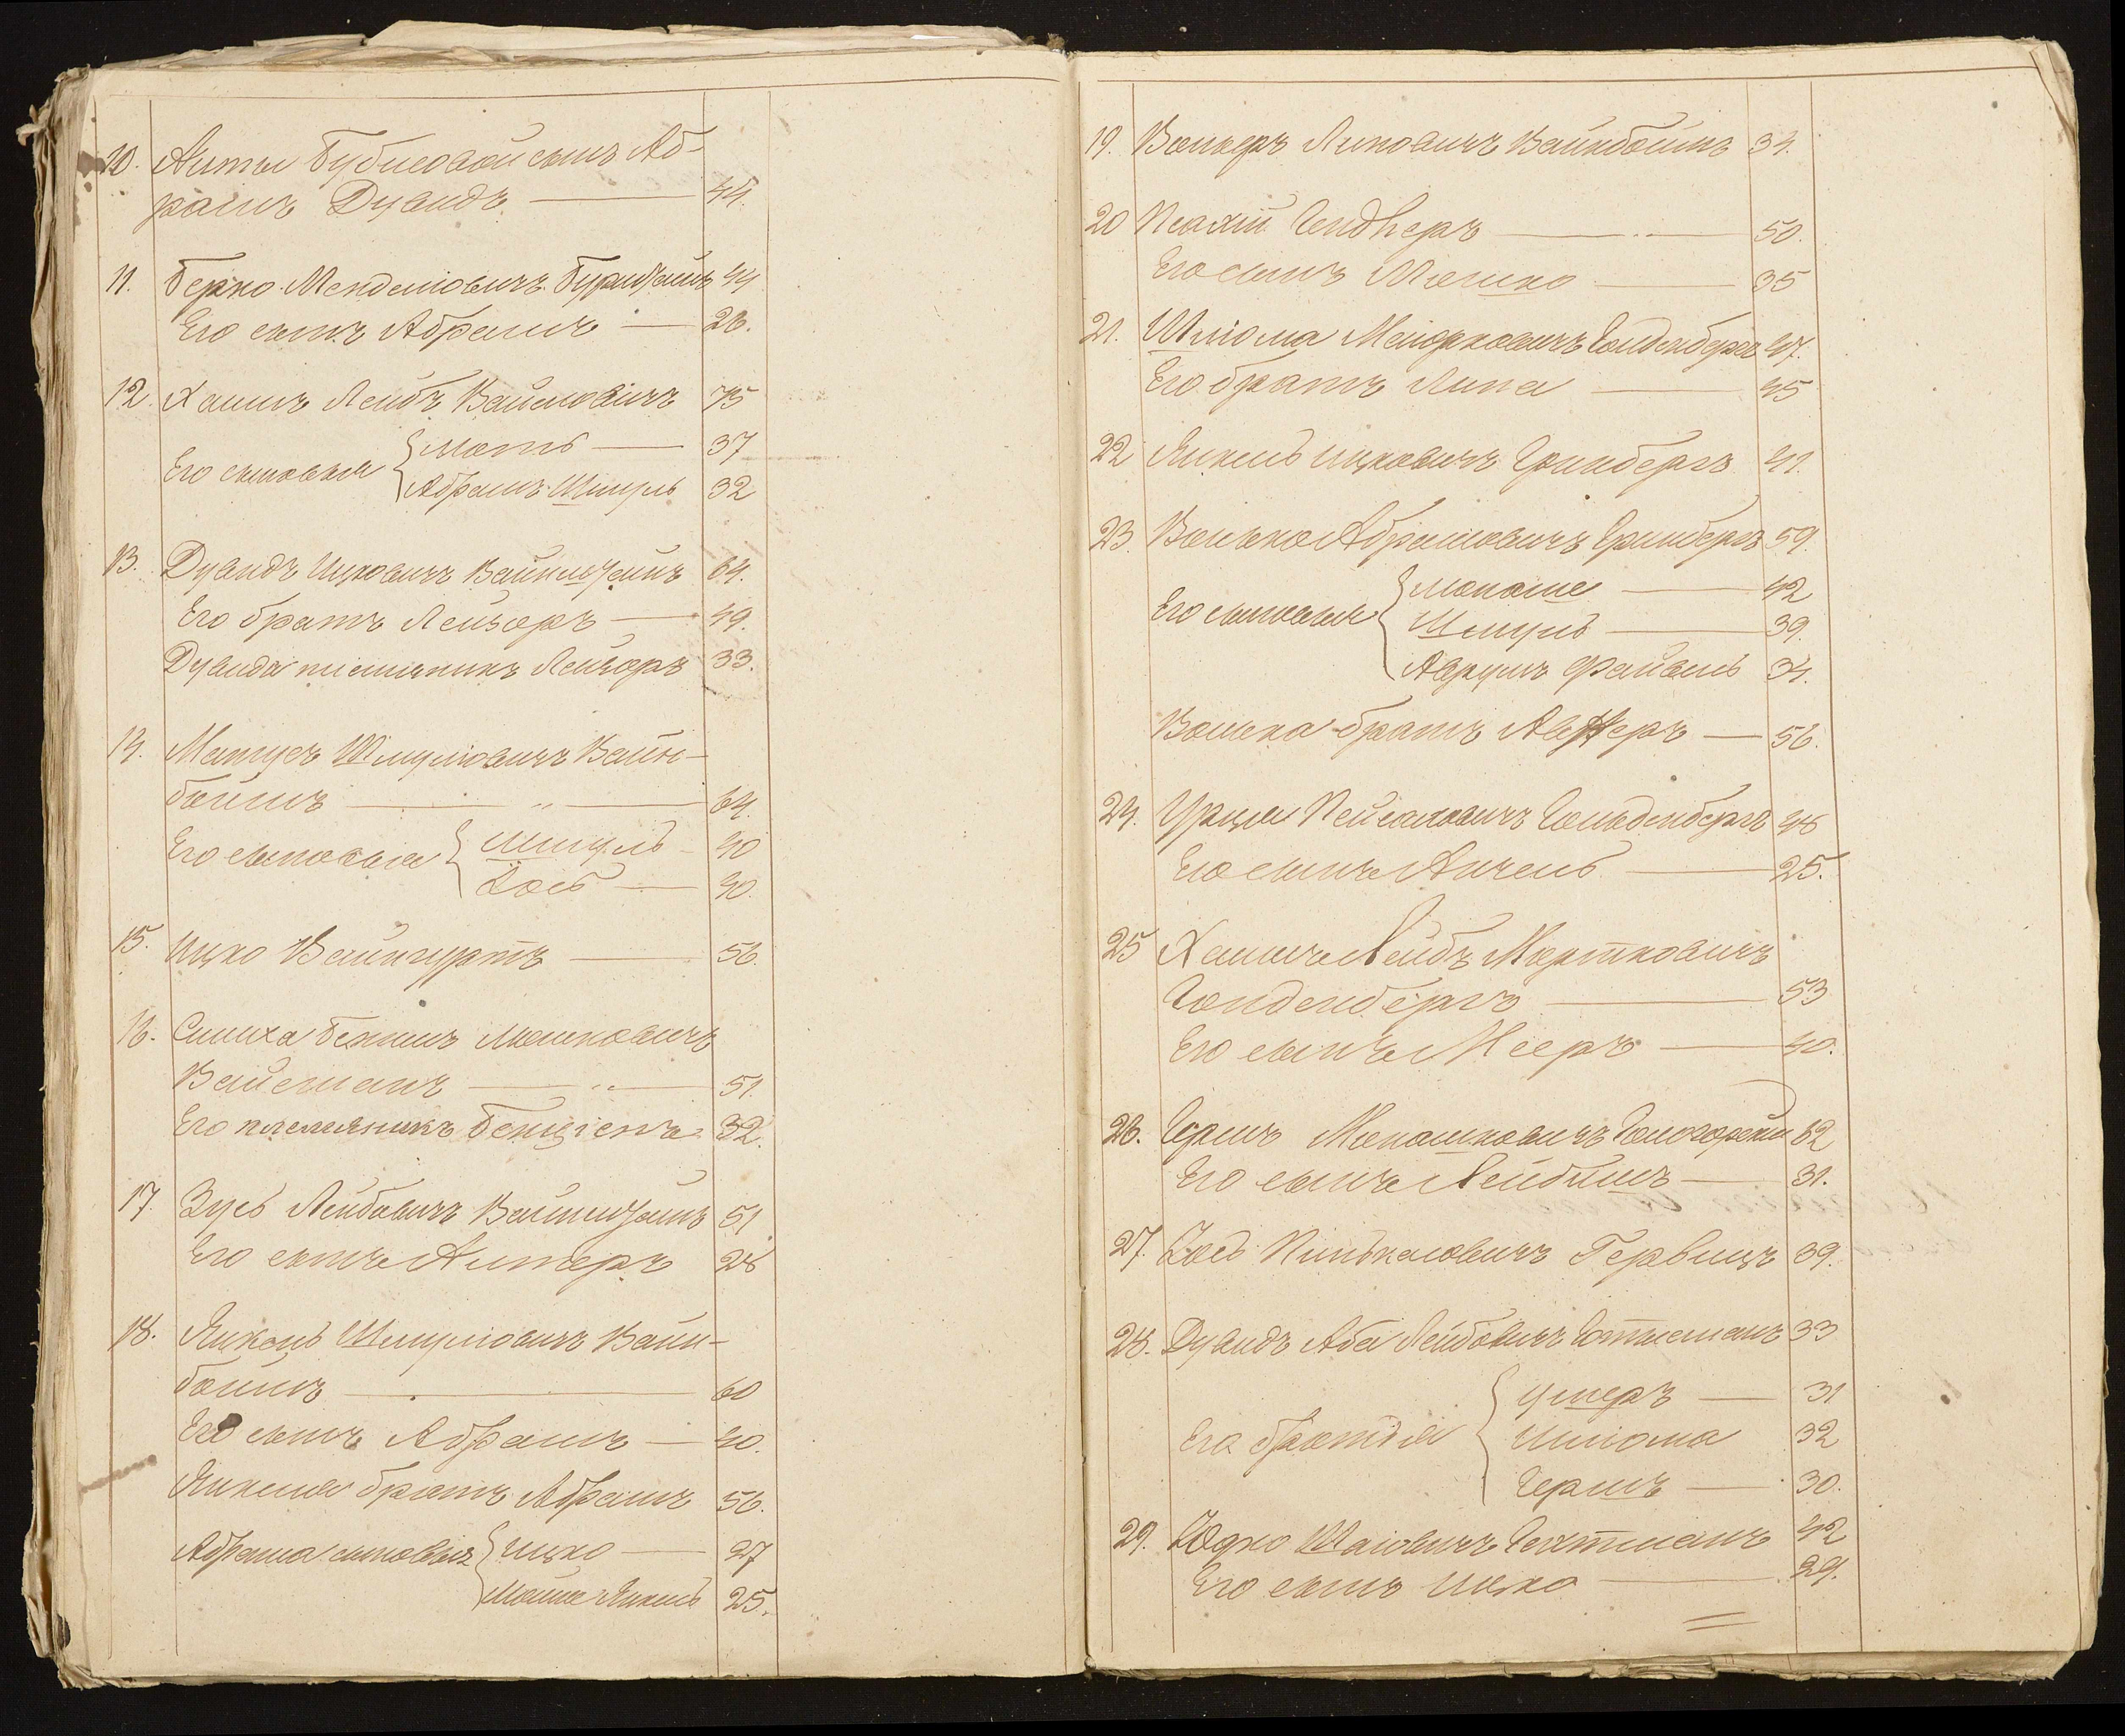 10. Анты Бубисовой сынъ Аб-
рамъ Дувидъ — 44.
11. Берко Менделіовичъ 44
Его сынъ Абрамъ — 26.
12. Хаимъ Лейбъ 75
Его сыновья { Моть — 37
Абрамъ Шмуль 32
13. Дувидъ Ицковичъ Вайнштейнъ 64.
Его братъ Лейзоръ — 49.
Дувида племянникъ Лейзоръ 33.
14. Матусъ Шмуліовичъ Вайн-
боимъ — „ — 64.
Его сыновья { Шмуль — 40
Іось — 30.
15. Ицко Вайнгуртъ — 56.
16. Симха Бенюмъ Мошковичъ
Вайсманъ — „ — 51.
Его племянникъ Бенціонъ 32.
17. Зусь Лейбовичъ Вайнштейнъ 51
Его сынъ Алтеръ 28
18. Янкель Шмуліовичъ Вайн-
боимъ — 60
Его сынъ Абрамъ — 30.
Янкеля братъ Абрамъ 56.
Абрама сыновья { Ицко — 27
Мошко Янкель 25.
19. Волькеръ Липовичъ Вайнбоимъ 34.
20 Псахій — „ — 50.
Его сынъ Мошко — 35
21. Шліома Маіорковичъ Гольденбергъ 47.
Его братъ Липа — 45
22 Янкель Ицковичъ Гринбергъ 41.
23. Волько Абрамовичъ Гринбергъ 59.
Его сыновья { Монаше — 42
Шмуль — 39.
Аврумъ Файвель 34.
Волька братъ — 56.
24. Пейсаховичъ Гольденбергъ 48
Его сынъ Анчель — 25.
25 Хаимъ Лейбъ Мортковичъ
Гольденбергъ — 53
Его сынъ Мееръ — 30.
26. Гершъ Монашковичъ 62
Его сынъ Лейбишъ — 31.
27. Іось Пиньхасовичъ Гервицъ 39.
28. Дувидъ Аба Лейбовичъ 33
Его братья { Ушеръ — 31
Шліома 32
Гершъ — 30.
29. Юдко Шаіовичъ Гехтманъ 42
Его сынъ Ицко — 29.